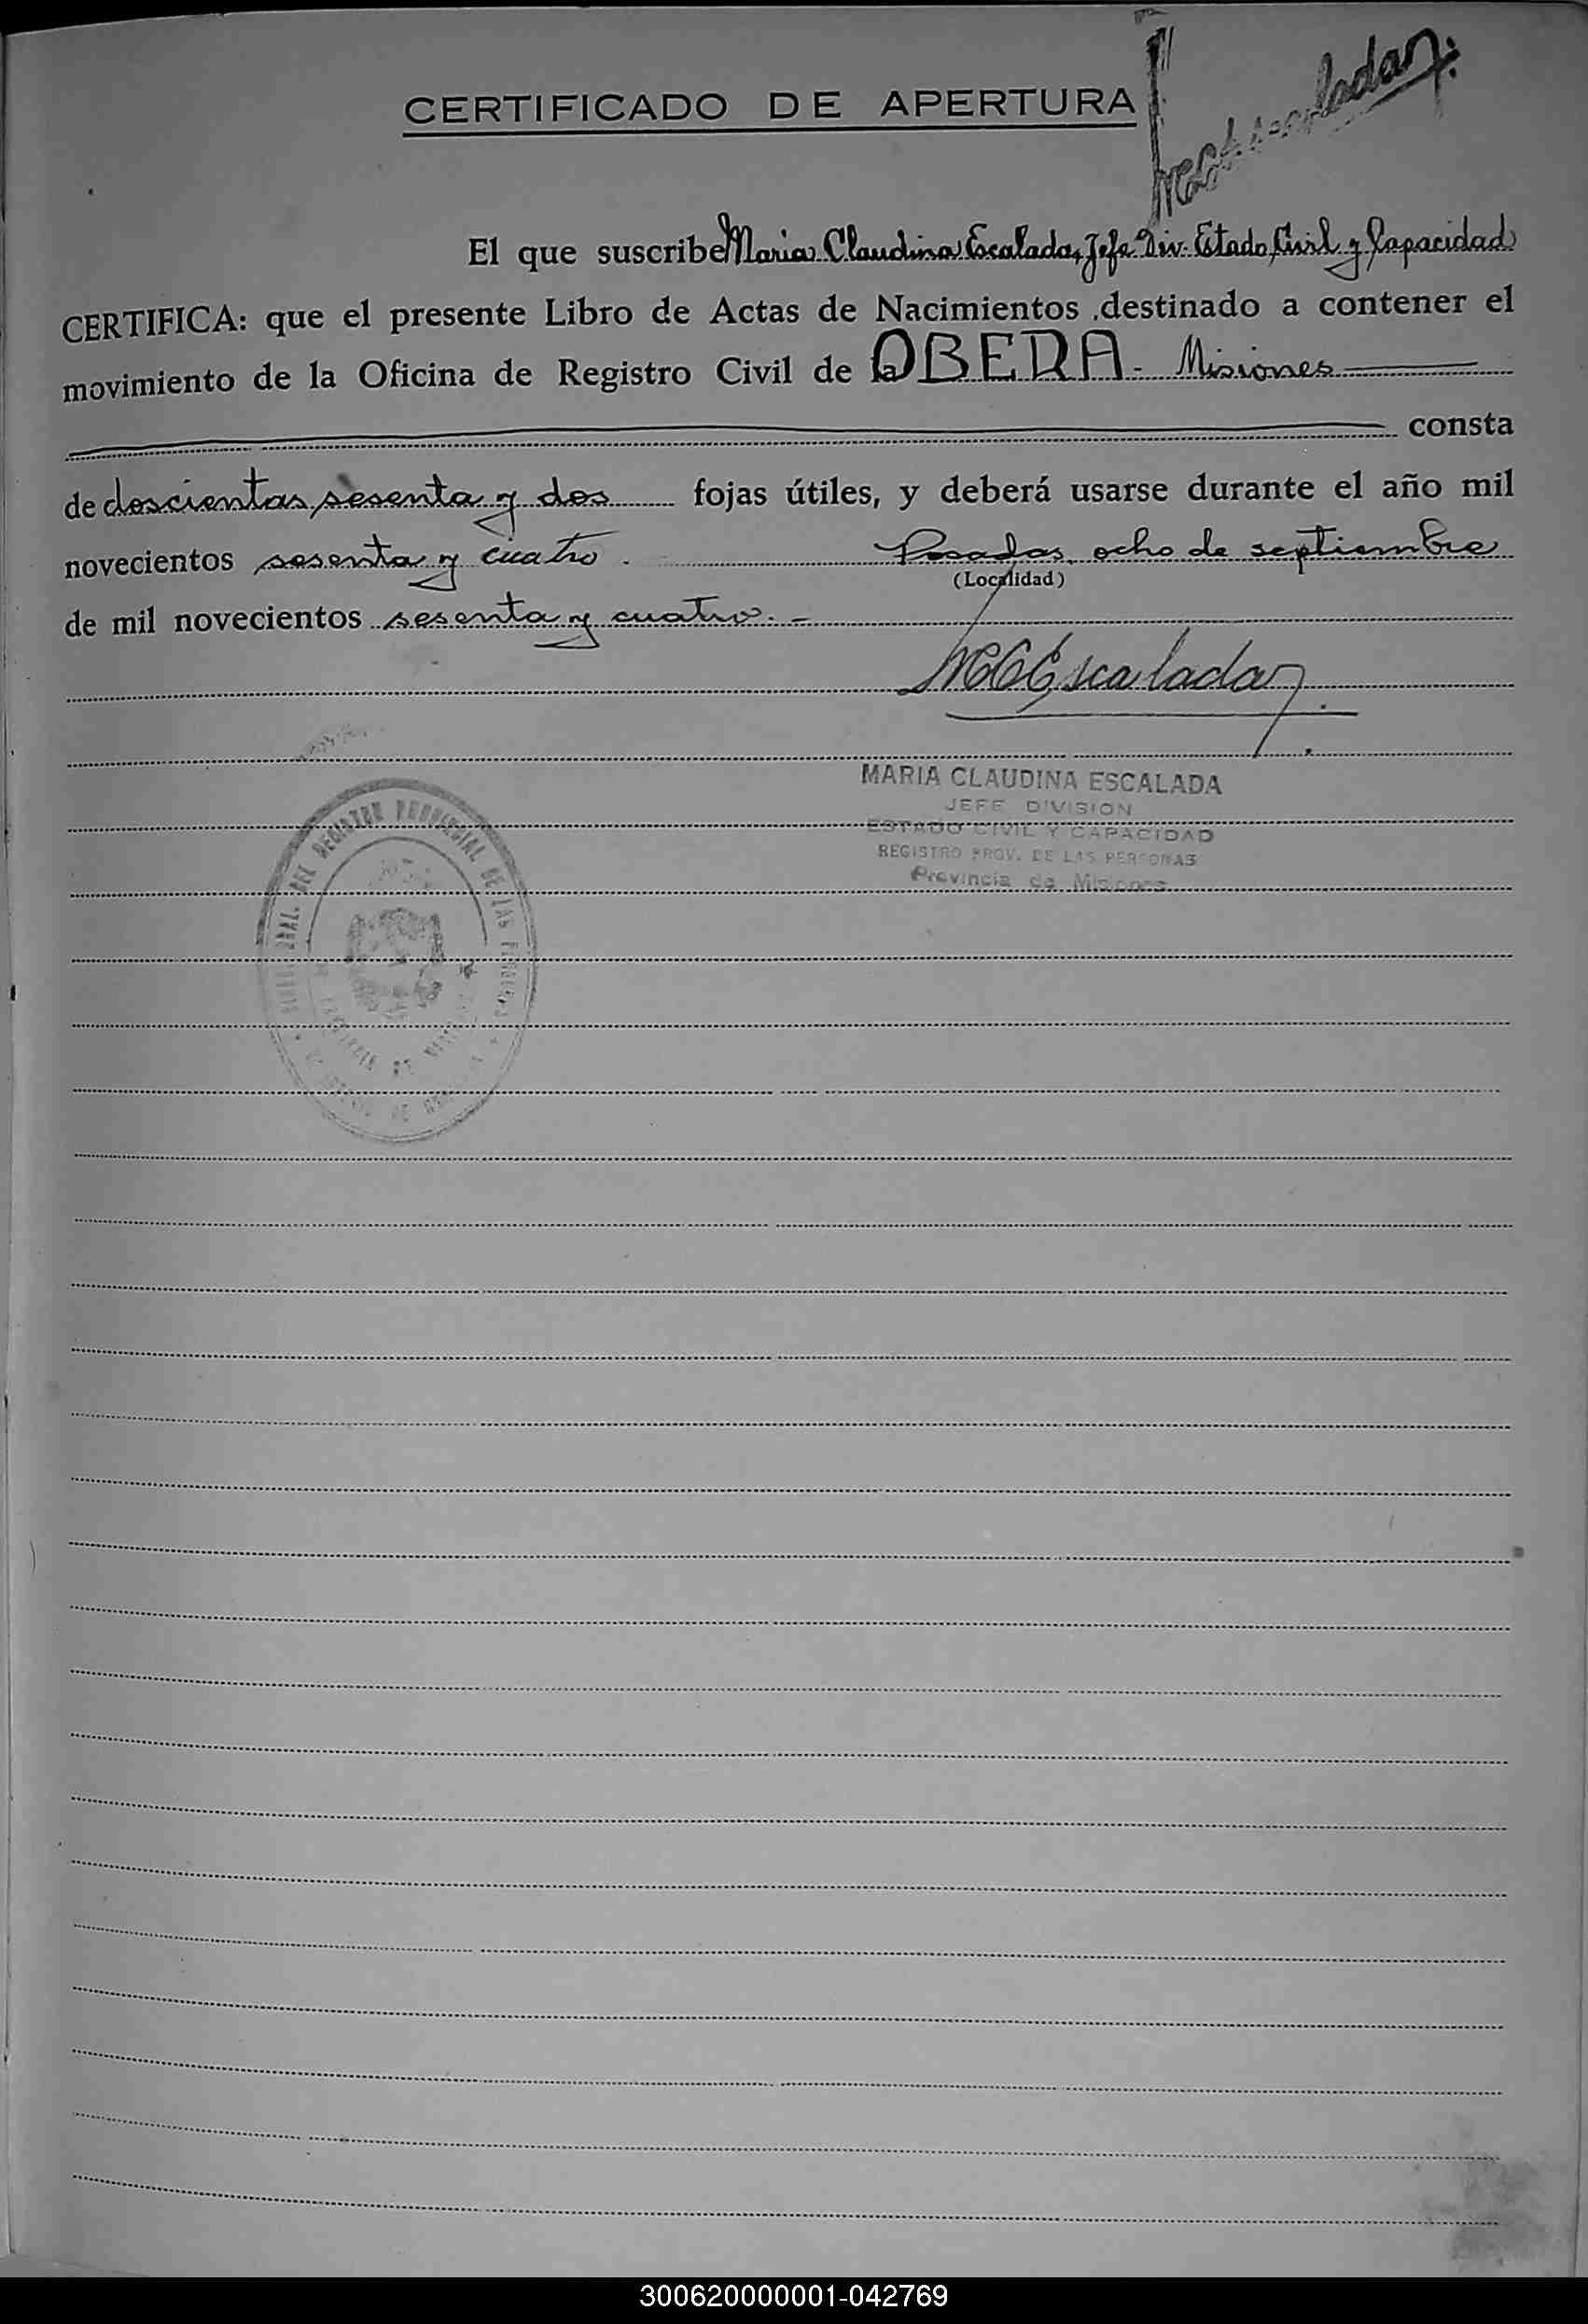 CERTIFICADO DE APERTURA
El que suscribe Maria Claudina Escalada, Jefe Div. Estado Civil y Capacidad
CERTIFICA: que el presente Libro de Actas de Nacimientos ,destinado a contener el
movimiento de la Oficina de Registro Civil de OBERA - Misiones
consta
de doscientas sesenta y dos fojas útiles, y deberá usarse durante el año mil
novecientos sesenta y cuatro. Posadas, ocho de septiembre
(Localidad)
de mil novecientos sesenta y cuatro. -
MCEscalada
MARIA CLAUDINA ESCALADA
JEFE DIVISION
ESTADO CIVIL Y CAPACIDAD
REGISTRO PROV. DE LAS PERSONAS
Provincia de Misiones
GRAL. DEL REGISTRO PROVINCIAL DE LAS PERSONAS
300620000001-042769